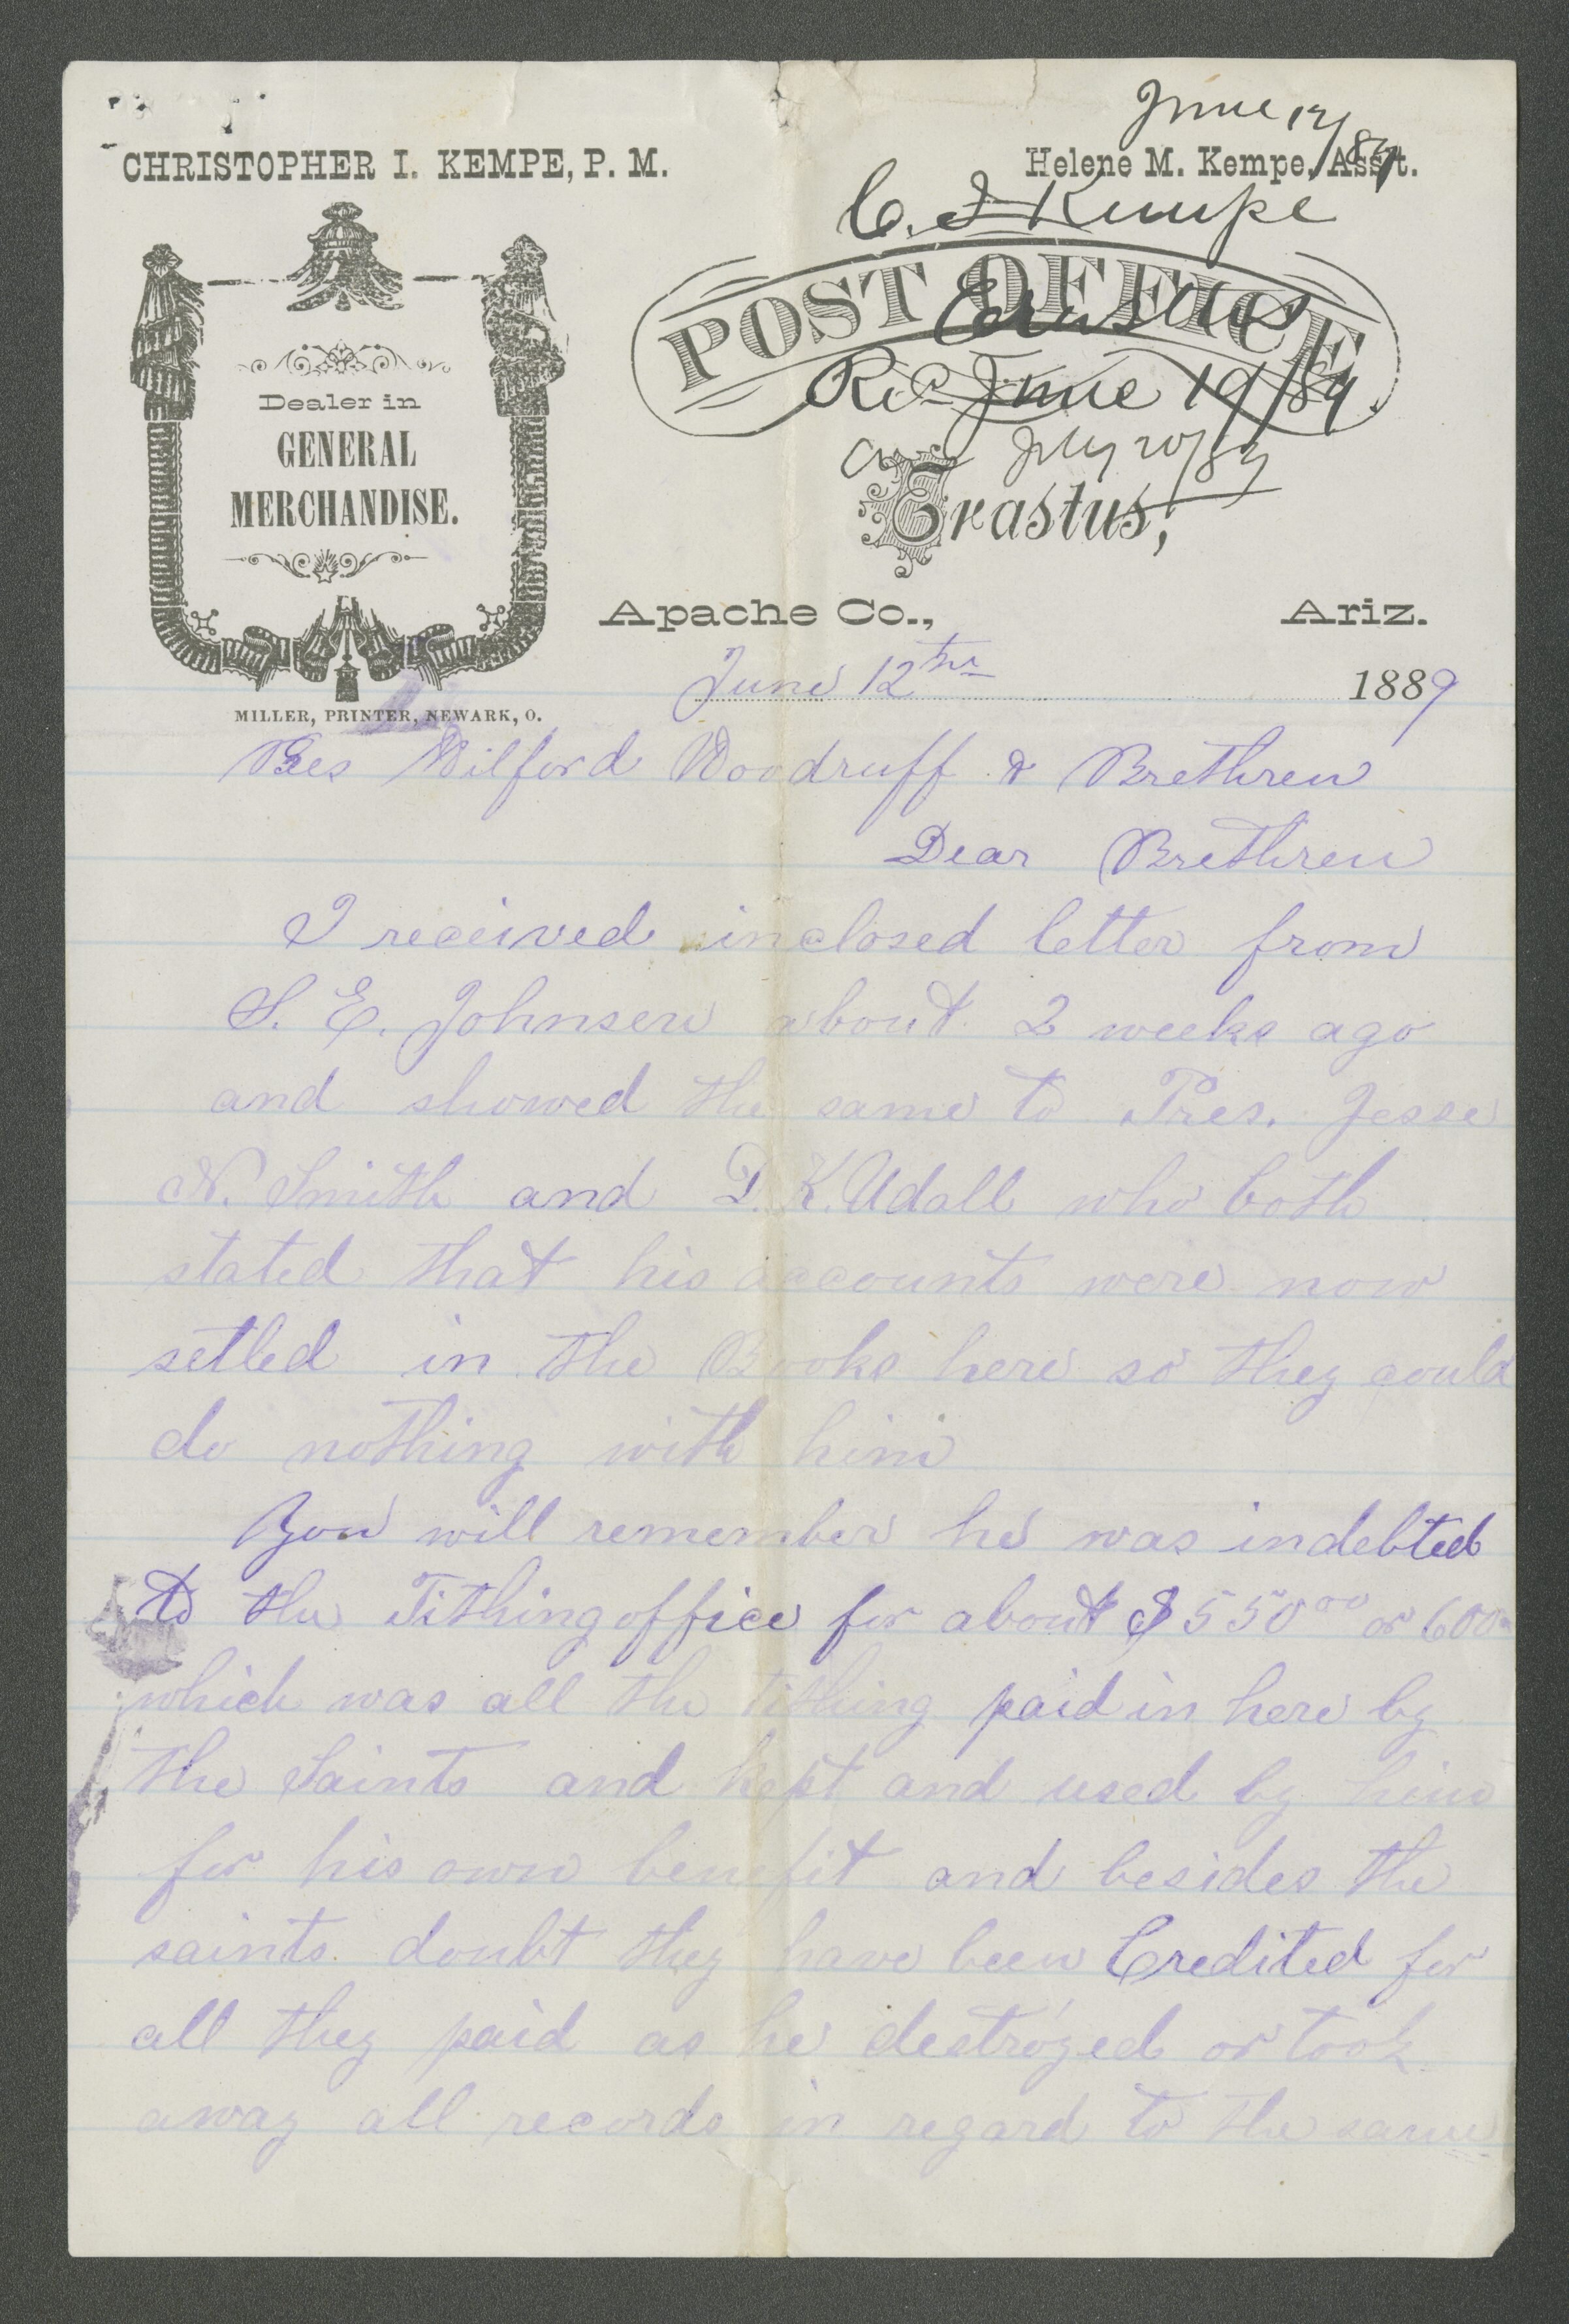 June 12/89
CHRISTOPHER I. KEMPE, P. M.
Helene M. Kempe, Ass't.
C. I Kempe
POST OFFICE
Erastus
Rec June 19/89.
July 20/89
Erastus,
Dealer in
GENERAL
MERCHANDISE.
Apache Co., Ariz.
June 12th 1889
MILLER, PRINTER, NEWARK, O.
Pres Wilford Woodruff & Brethren
Dear Brethren
I received inclosed letter from
S. E. Johnsen about 2 weeks ago
and showed the same to Pres. Jesse
N. Smith and D. K. Udall who both
stated that his accounts were now
setled in the Books here so they could
do nothing with him
You will remember he was indebted
to the Tithing office for about $550 00 or 600
which was all the tithing paid in here by
the Saints and kept and used by him
for his own benefit and besides the
saints doubt they have been Credited for
all they paid as he destroyed or took
away all records in regard to the same